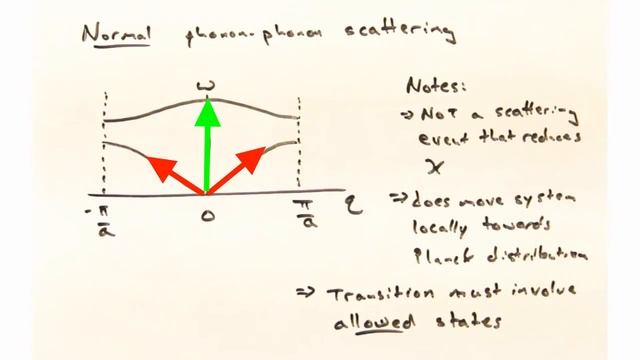 Normal phonon-phonon scattering
ω
-π/a
0
π/a
q
Notes:
⇒ Not a scattering
event that reduces
χ
⇒ does move system
locally towards
Planck distribution
⇒ Transition must involve
allowed states